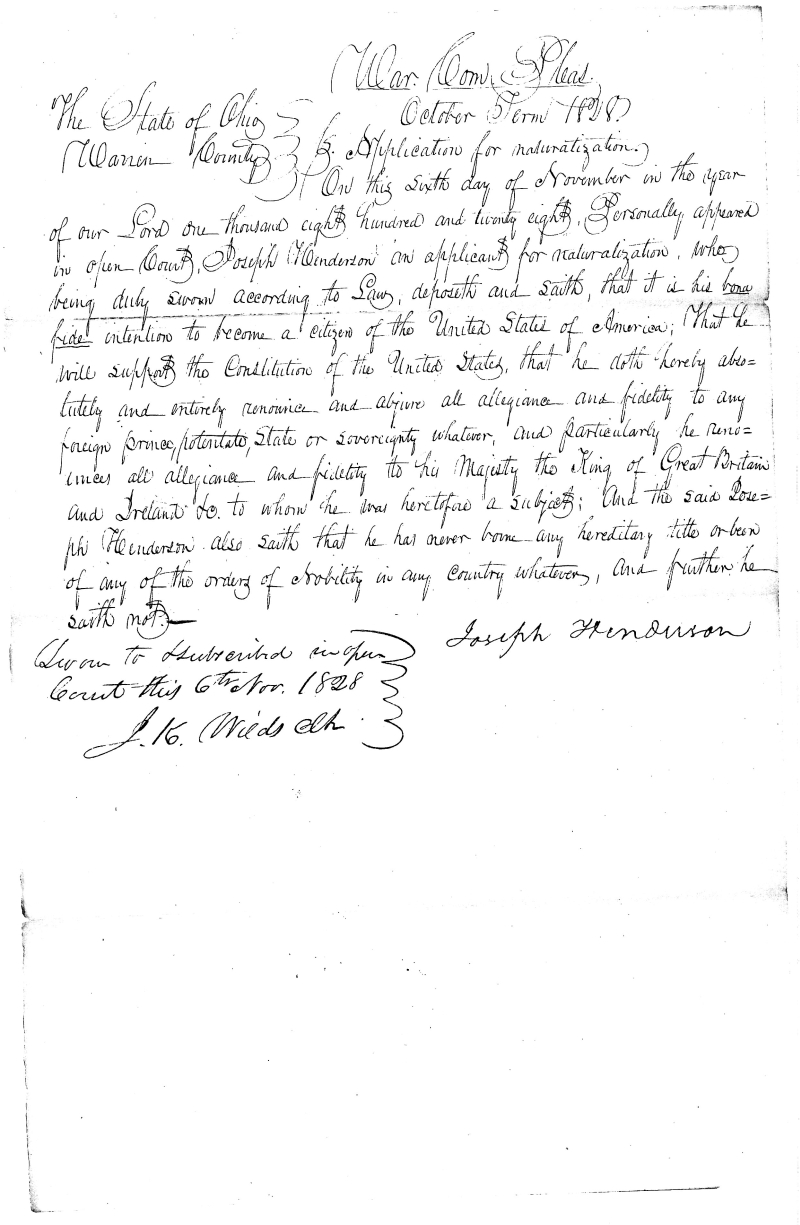 War. Com. Pleas.
October Term 1828.
The State of Ohio
Warren County
Application for naturalization.
On this sixth day of November in the year
of our Lord one thousand eight hundred and twenty eight, Personally appeared
in open Court, Joseph Henderson an applicant for naturalization, who
being duly sworn according to Law, deposeth and saith, that it is his bona
fide intention to become a citizen of the United States of America; That he
will support the Constitution of the United States, that he doth hereby abso=
lutely and entirely renounce and abjure all allegiance and fidelity to any
foreign prince, potentate, State or sovereignty whatever, and particularly he reno=
unces all allegiance and fidelity to his Majesty the King of Great Britain
and Ireland &c. to whom he was heretofore a subject; And the said Jose=
ph Henderson also saith that he has never borne any hereditary title or been
of any of the orders of Nobility in any country whatever, and further he
saith not.
Joseph Henderson
Sworn to & subscribed in open
Court this 6th Nov. 1828
J. K. Wilds Clk